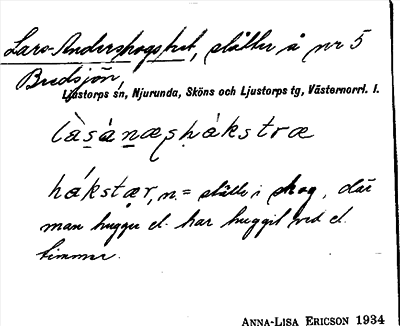 Lars-Andershogstret, ställe å nr 5
Bredsjön,
Ljustorps sn, Njurunda, Sköns och Ljustorps tg, Västernorrl. l.
là̱s̱á̱ṉæs̩hákstræ
hákstær, n. = ställe i skog, där
man hugger el. har huggit ved el.
timmer.
ANNA-LISA ERICSON 1934